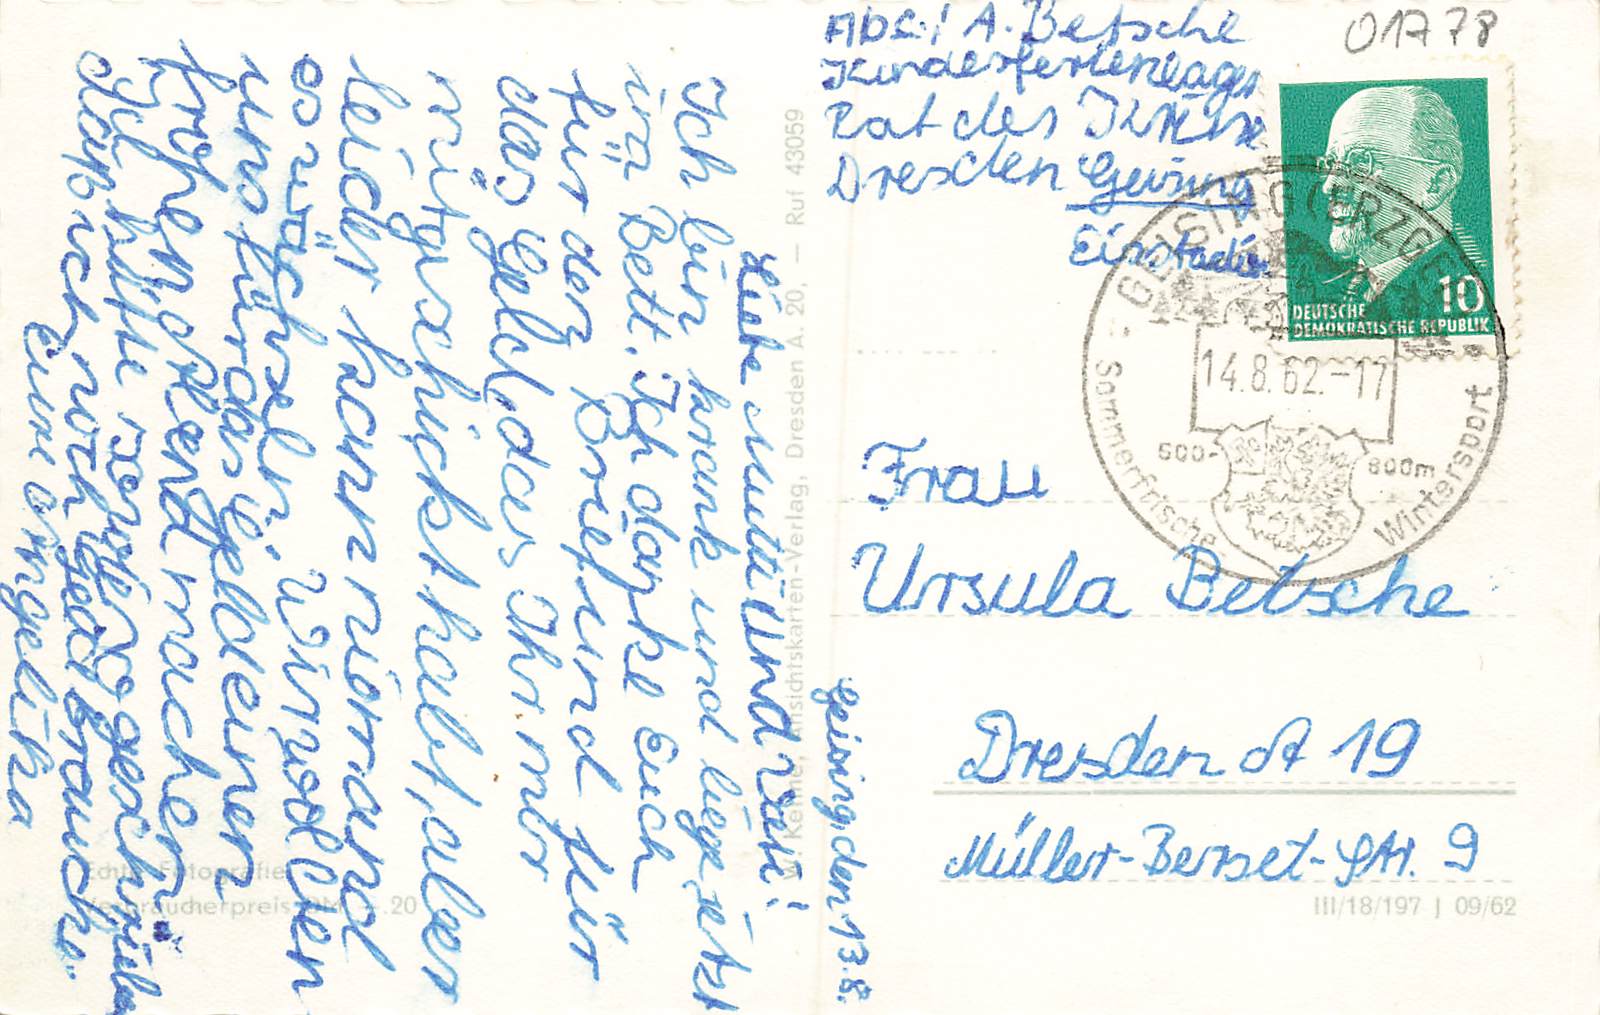 01778
Abs.: A. Betsche
Kinderferienlager
Rat des
Dresden Geising
Eisstadion
DEUTSCHE
DEMOKRATISCHE REPUBLIK
10
GEISING (ERZGEB.)
14.8.62.-17
600-
800m
Sommerfrische
Wintersport
Frau
Ursula Betsche
Dresden A 19
Müller-Berset-Str. 9
III/18/197 J 09/62
Geising, den 13.8.
Liebe Mutti und Vati!
Ich bin krank und liege jetzt
im Bett. Ich danke Euch
für den Brief und für
das Geld, das Ihr mir
mitgeschickt habt, aber
leider kann niemand
es wechseln. Wir wollen
uns für das Geld einen
frohen Abend machen.
Ich hatte
daß ich noch Geld brauche.
Eure Angelika
W. Kenne, Ansichtskarten-Verlag, Dresden A. 20, — Ruf 43059
Echte Fotografie
Verbraucherpreis DM —.20